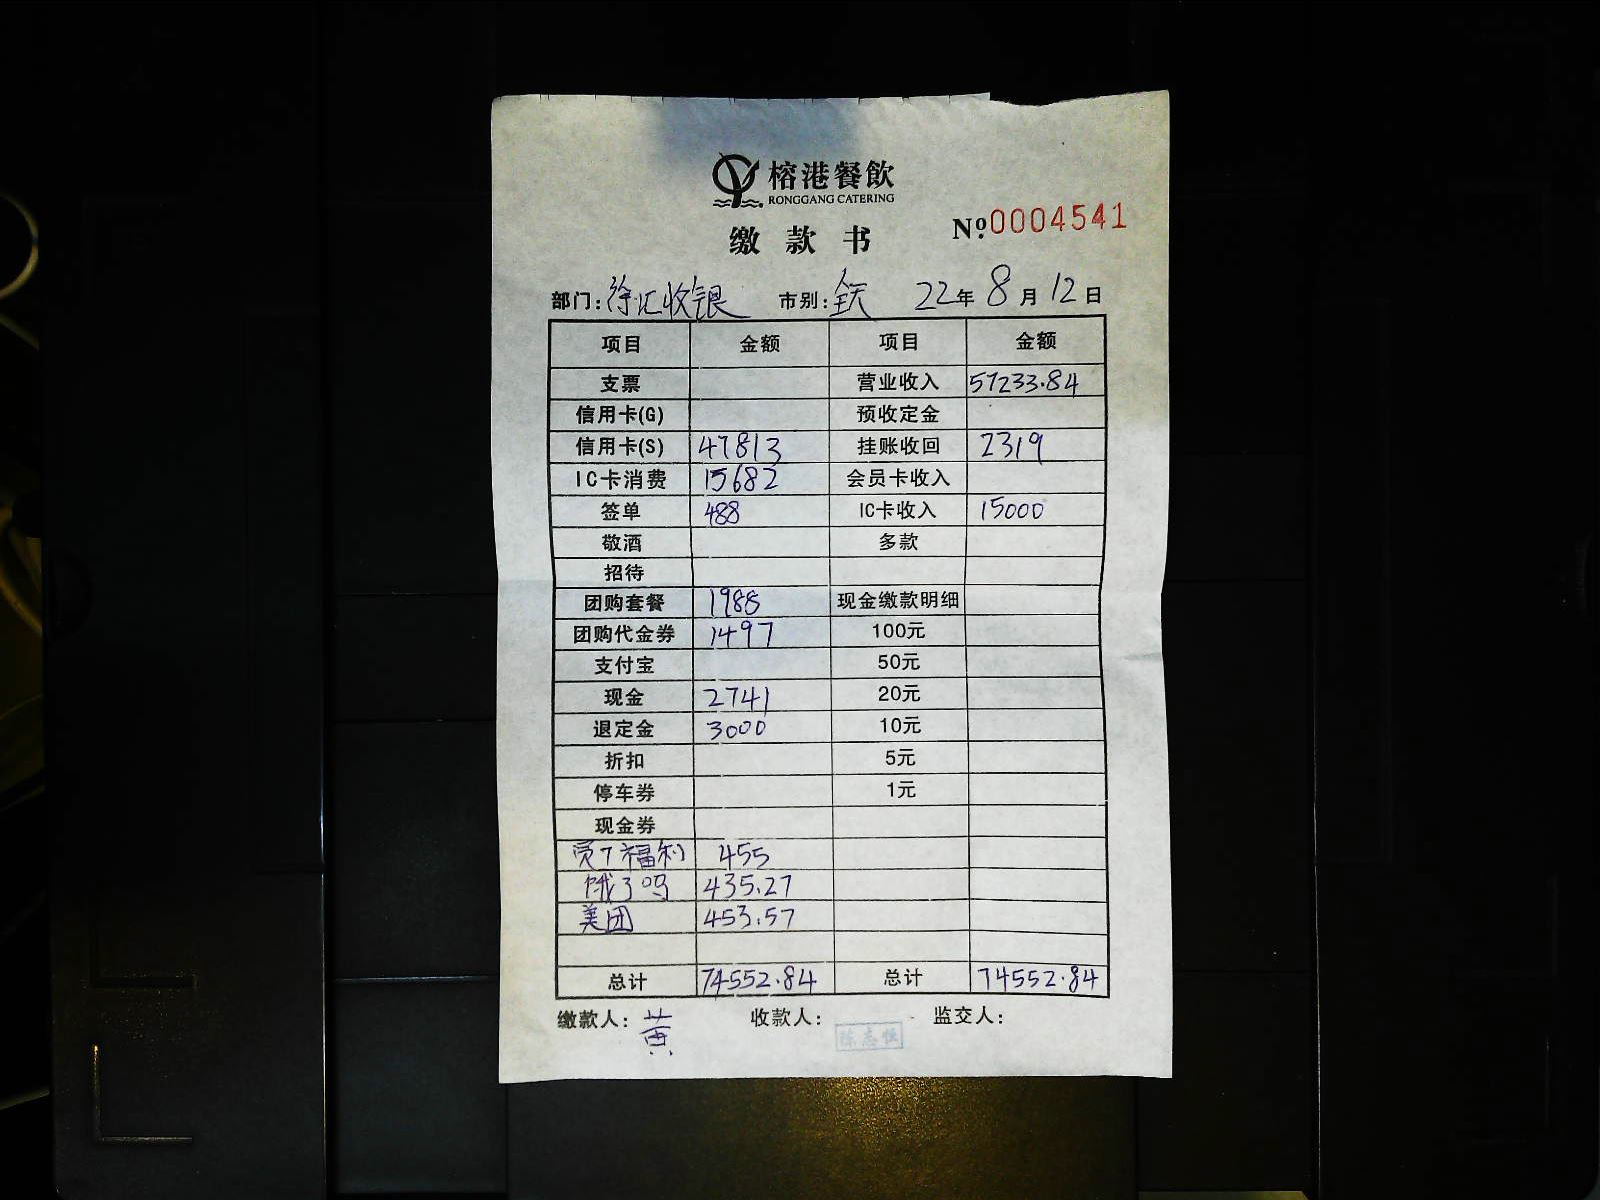 榕港餐飲
RONGGANG CATERING
缴款书
Nº.0004541
部门:徐汇收银 市别:全天 22年8月12日
项目 金额 项目 金额
支票 营业收入 57233.84
信用卡(G) 预收定金
信用卡(S) 47813 挂账收回 2319
IC卡消费 15682 会员卡收入
签单 488 IC卡收入 15000
敬酒 多款
招待
团购套餐 1988 现金缴款明细
团购代金券 1497 100元
支付宝 50元
现金 2741 20元
退定金 3000 10元
折扣 5元
停车券 1元
现金券
员工福利 455
饿了吗 435.27
美团 453.57
总计 74552.84 总计 74552.84
缴款人:黄 收款人: 监交人: